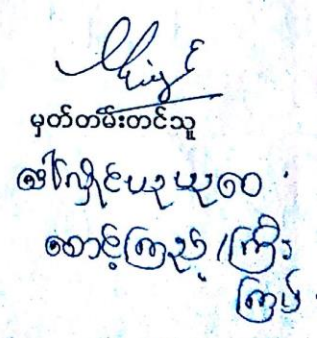 မှတ်တမ်းတင်သူ
ဒေါ်လှိုင်ယဉ်ယုဝေ
စောင့်ကြည့်/ကြီး
ကြပ်